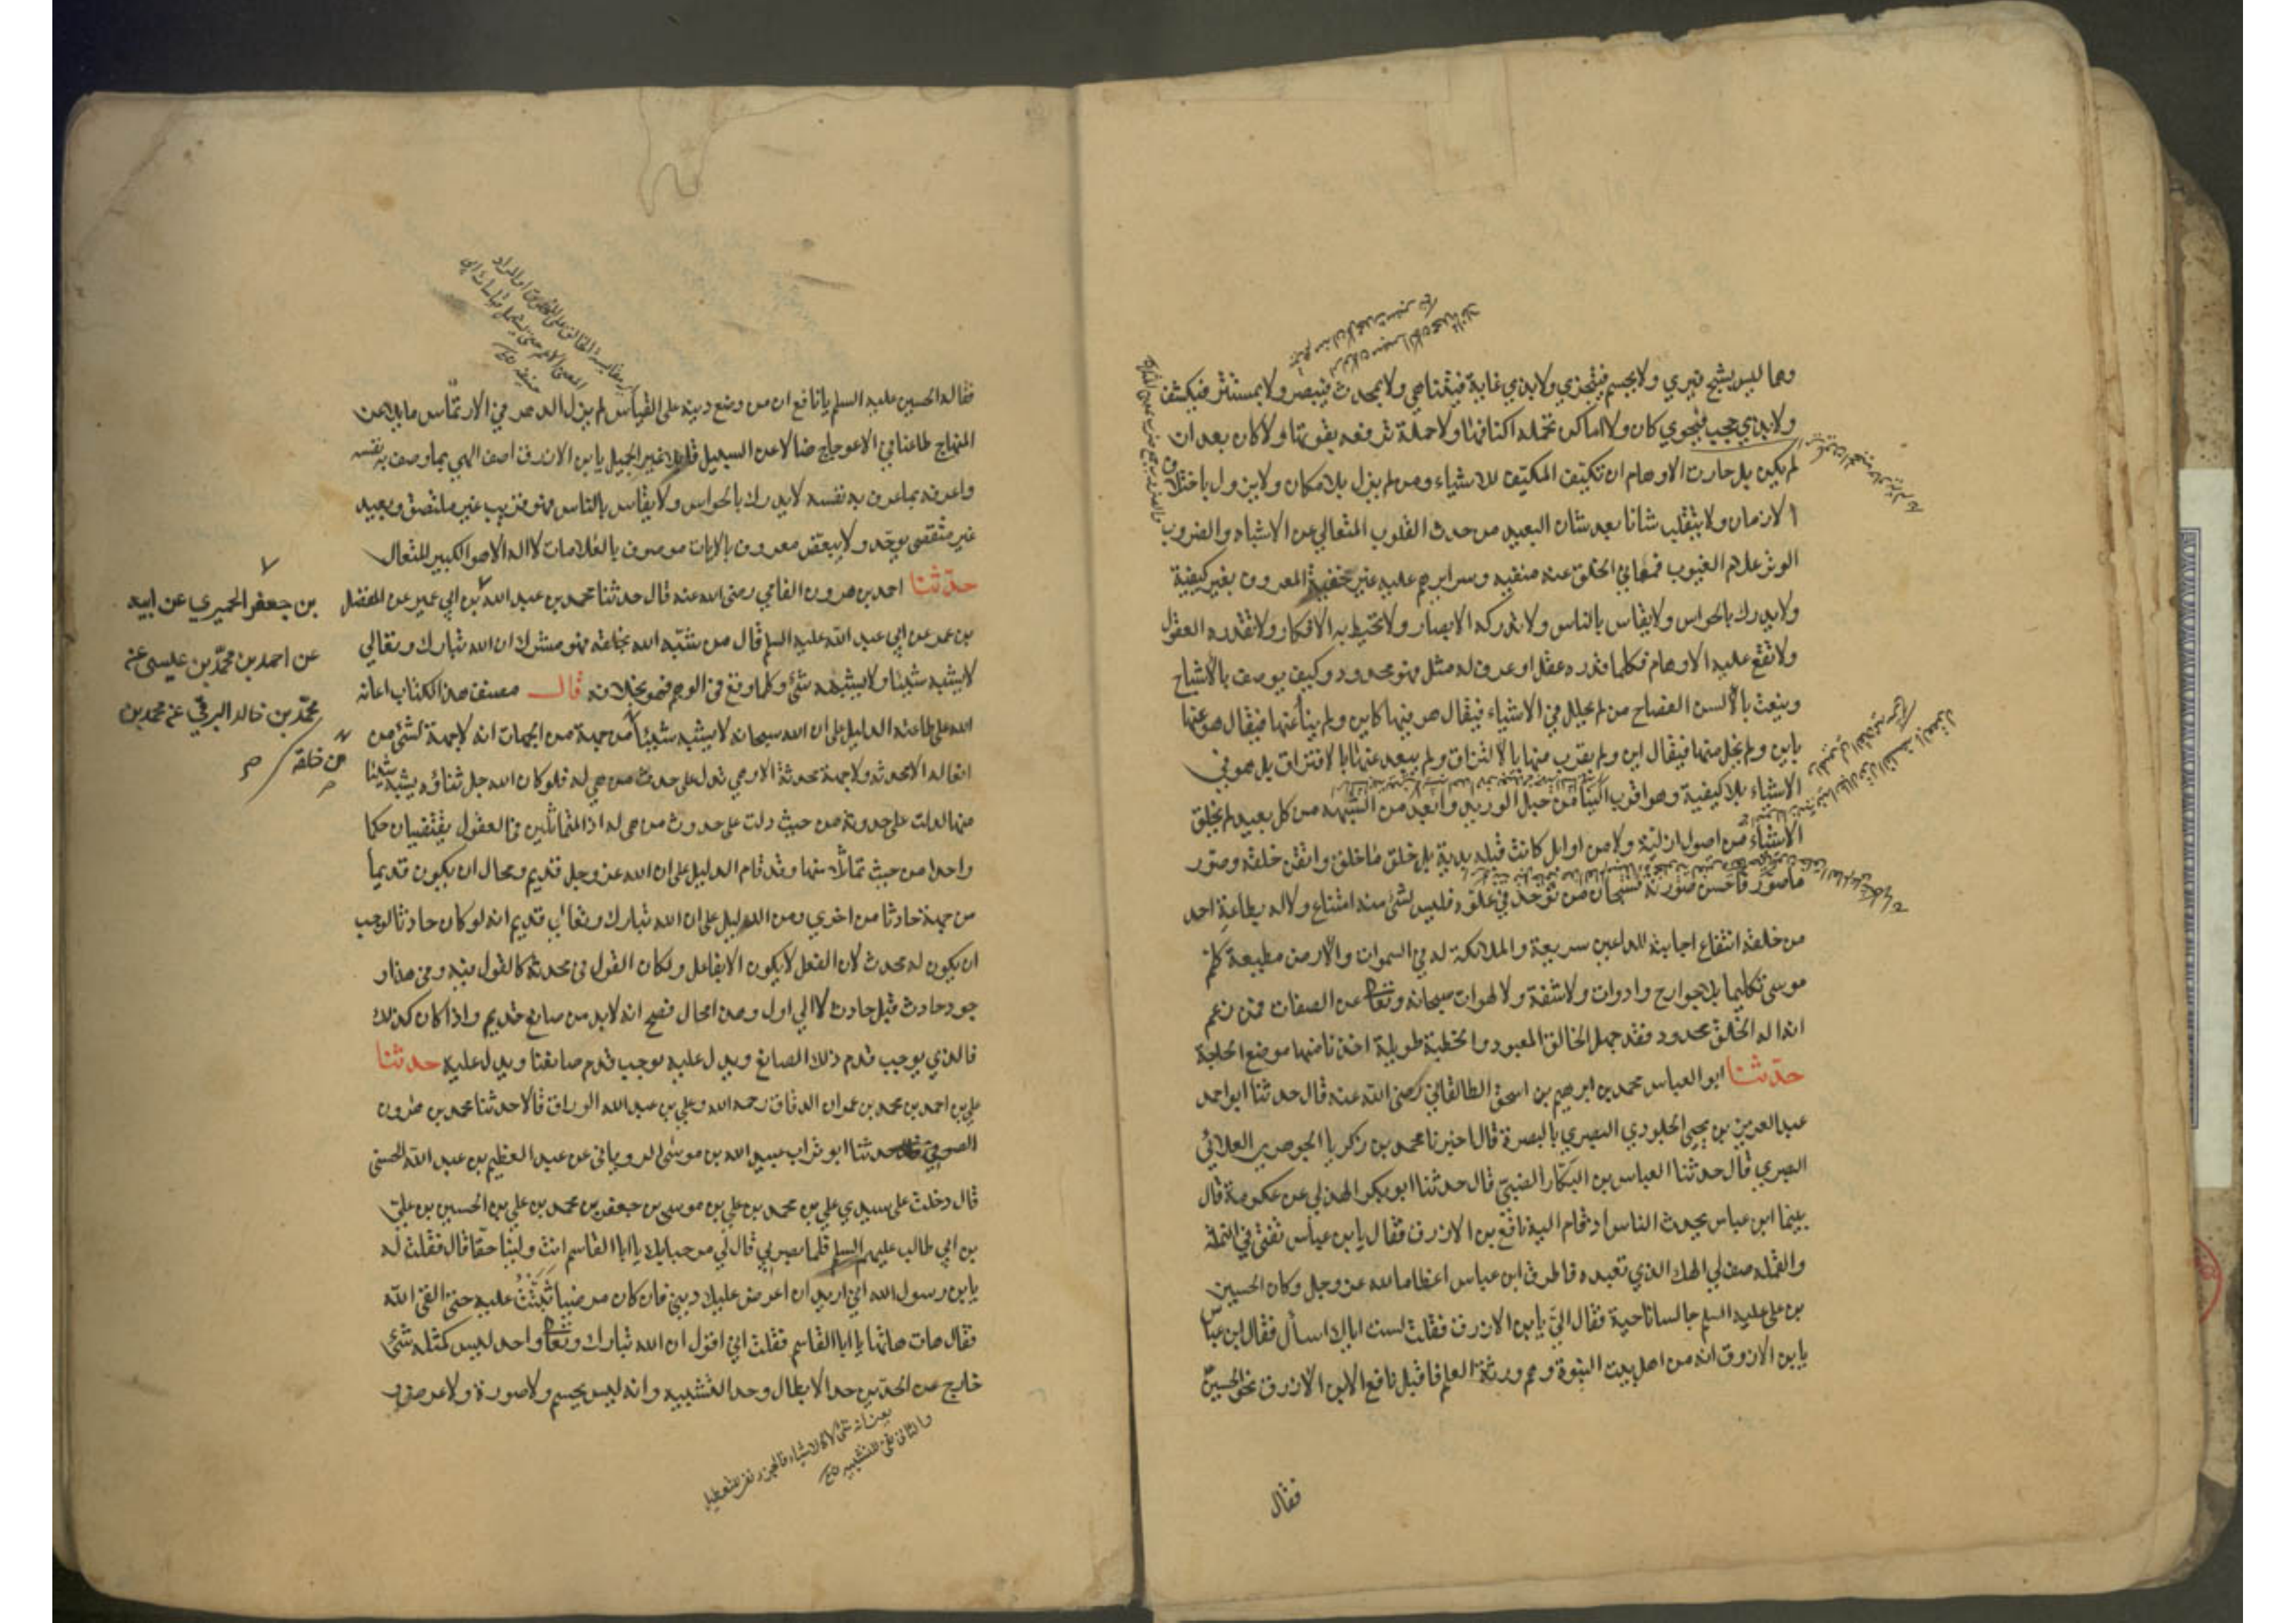 وهما ليس بشبح فيرى ولا بجسم فيتجزى ولا بذي غاية فيتناهى ولا بمحدث فيبصر ولا بمستتر فيكشف
ولا بذي حجب فيحوى كان ولا اماكن تحمله اكنافها ولا حملة ترفعه بقوتها ولا كان بعد ان
لم يكن بل حارت الاوهام ان تكيف المكيف للاشياء ومن لم يزل بلا مكان ولا يزول باختلاف
الازمان ولا يتقلب شانا بعد شان البعيد من حدث القلوب المتعالي عن الاشباه والضروب
الوتر علام الغيوب فمعاني الخلق عنه منفيه وسرايرهم عليه غير خفية المعروف بغير كيفية
ولا يدرك بالحواس ولا يقاس بالناس ولا تدركه الابصار ولا تحيط به الافكار ولا تقدره العقول
ولا تقع عليه الاوهام فكلما قدره عقل او عرف له مثل فهو محدود وكيف يوصف بالاشباح
وينعت بالالسن الفصاح من لم يحلل في الاشياء فيقال هو فيها كاين ولم ينأ عنها فيقال هو عنها
باين ولم يخل منها فيقال اين ولم يقرب منها بالالتزاق ولم يبعد عنها بالافتراق بل هو في
الاشياء بلا كيفية وهو اقرب الينا من حبل الوريد وابعد من الشبهه من كل بعيد لم يخلق
الاشياء من اصول ازلية ولا من اوايل كانت قبله بدية بل خلق ما خلق واتقن خلقه وصور
ما صور فاحسن صورته فسبحان من توحد في علوه فليس لشئ منه امتناع ولا له بطاعة احد
من خلقه انتفاع اجابته للداعين سريعة والملائكة له في السموات والارض مطيعة كلم
موسى تكليما بلا جوارح وادوات ولا شفة ولا لهوات سبحانه وتعالى عن الصفات فمن زعم
ان اله الخلق محدود فقد جهل الخالق المعبود والخطبة طويلة اخذنا منها موضع الحاجة
حدثنا ابو العباس محمد بن ابرهيم بن اسحق الطالقاني رضى الله عنه قال حدثنا ابو احمد
عبد العزيز بن يحيى الجلودي البصري بالبصرة قال اخبرنا محمد بن زكريا الجوهري الغلابي
البصري قال حدثنا العباس بن البكار الضبي قال حدثنا ابو بكر الهذلي عن عكرمة قال
بينما ابن عباس يحدث الناس اذ قام اليه نافع بن الازرق فقال يا بن عباس تفتي في النملة
والقملة صف لي الهك الذي تعبده فاطرق ابن عباس اعظاما لله عز وجل وكان الحسين
بن علي عليه السلم جالسا ناحية فقال الي يا بن الازرق فقلت لست اياك اسأل فقال ابن عباس
يا بن الازرق انه من اهل بيت النبوة وهم ورثة العلم فاقبل نافع بن الازرق نحو الحسين
فقال
فقال له الحسين عليه السلم يا نافع ان من وضع دينه على القياس لم يزل الدهر في الارتماس مايلا عن
المنهاج طاعنا في الاعوجاج ضالا عن السبيل قايلا غير الجميل يا بن الازرق اصف الهي بما وصف به نفسه
واعرفه بما عرف به نفسه لا يدرك بالحواس ولا يقاس بالناس فهو قريب غير ملتصق وبعيد
غير متقصى يوحد ولا يبعض معروف بالايات موصوف بالعلامات لا اله الا هو الكبير المتعال
حدثنا احمد بن هرون الفامي رضى الله عنه قال حدثنا محمد بن عبد الله بن ابي عمير عن المفضل
بن جعفر الحميري عن ابيه
عن احمد بن محمد بن عيسى عن
محمد بن خالد البرقي عن محمد بن
بن عمر عن ابي عبد الله عليه السلم قال من شبه الله بخلقه فهو مشرك ان الله تبارك وتعالى
لا يشبه شيئا ولا يشبهه شئ وكلما وقع في الوهم فهو بخلافه قال مصنف هذا الكتاب اعانه
الله على طاعته الدليل على ان الله سبحانه لا يشبه شيئا من جهة من الجهات انه لا جهة لشئ من
من خلقه
افعاله الا محدثه ولا جهة محدثة الا وهي تدل على حدث من هي له فلو كان الله جل ثناؤه يشبه شيئا
منها لدلت على حدوثه من حيث دلت على حدوث من هي له اذ المتماثلين في العقول يقتضيان حكما
واحدا من حيث تماثلا منها وقد قام الدليل على ان الله عز وجل قديم ومحال ان يكون قديما
من جهة حادثا من اخرى ومن الدليل على ان الله تبارك وتعالى قديم انه لو كان حادثا لوجب
ان يكون له محدث لان الفعل لا يكون الا بفاعل ولكان القول في محدثه كالقول فيه وفي هذا و
جود حادث قبل حادث لا الى اول وهذا محال فصح انه لا بد من صانع قديم واذا كان كذلك
فالذي يوجب قدم ذلك الصانع ويدل عليه يوجب قدم صانعنا ويدل عليه حدثنا
علي بن احمد بن محمد بن عمران الدقاق رحمه الله وعلي بن عبد الله الوراق قالا حدثنا محمد بن هرون
الصوفي قال حدثنا ابو تراب عبيد الله بن موسى الروياني عن عبد العظيم بن عبد الله الحسني
قال دخلت على سيدي علي بن محمد بن علي بن موسى بن جعفر بن محمد بن علي بن الحسين بن علي
بن ابي طالب عليهم السلم فلما بصر بي قال لي مرحبا بك يا ابا القاسم انت ولينا حقا قال فقلت له
يا بن رسول الله اني اريد ان اعرض عليك ديني فان كان مرضيا ثبت عليه حتى القى الله
فقال هات هاتها يا ابا القاسم فقلت اني اقول ان الله تبارك وتعالى واحد ليس كمثله شئ
خارج عن الحدين حد الابطال وحد التشبيه وانه ليس بجسم ولا صورة ولا عرض و